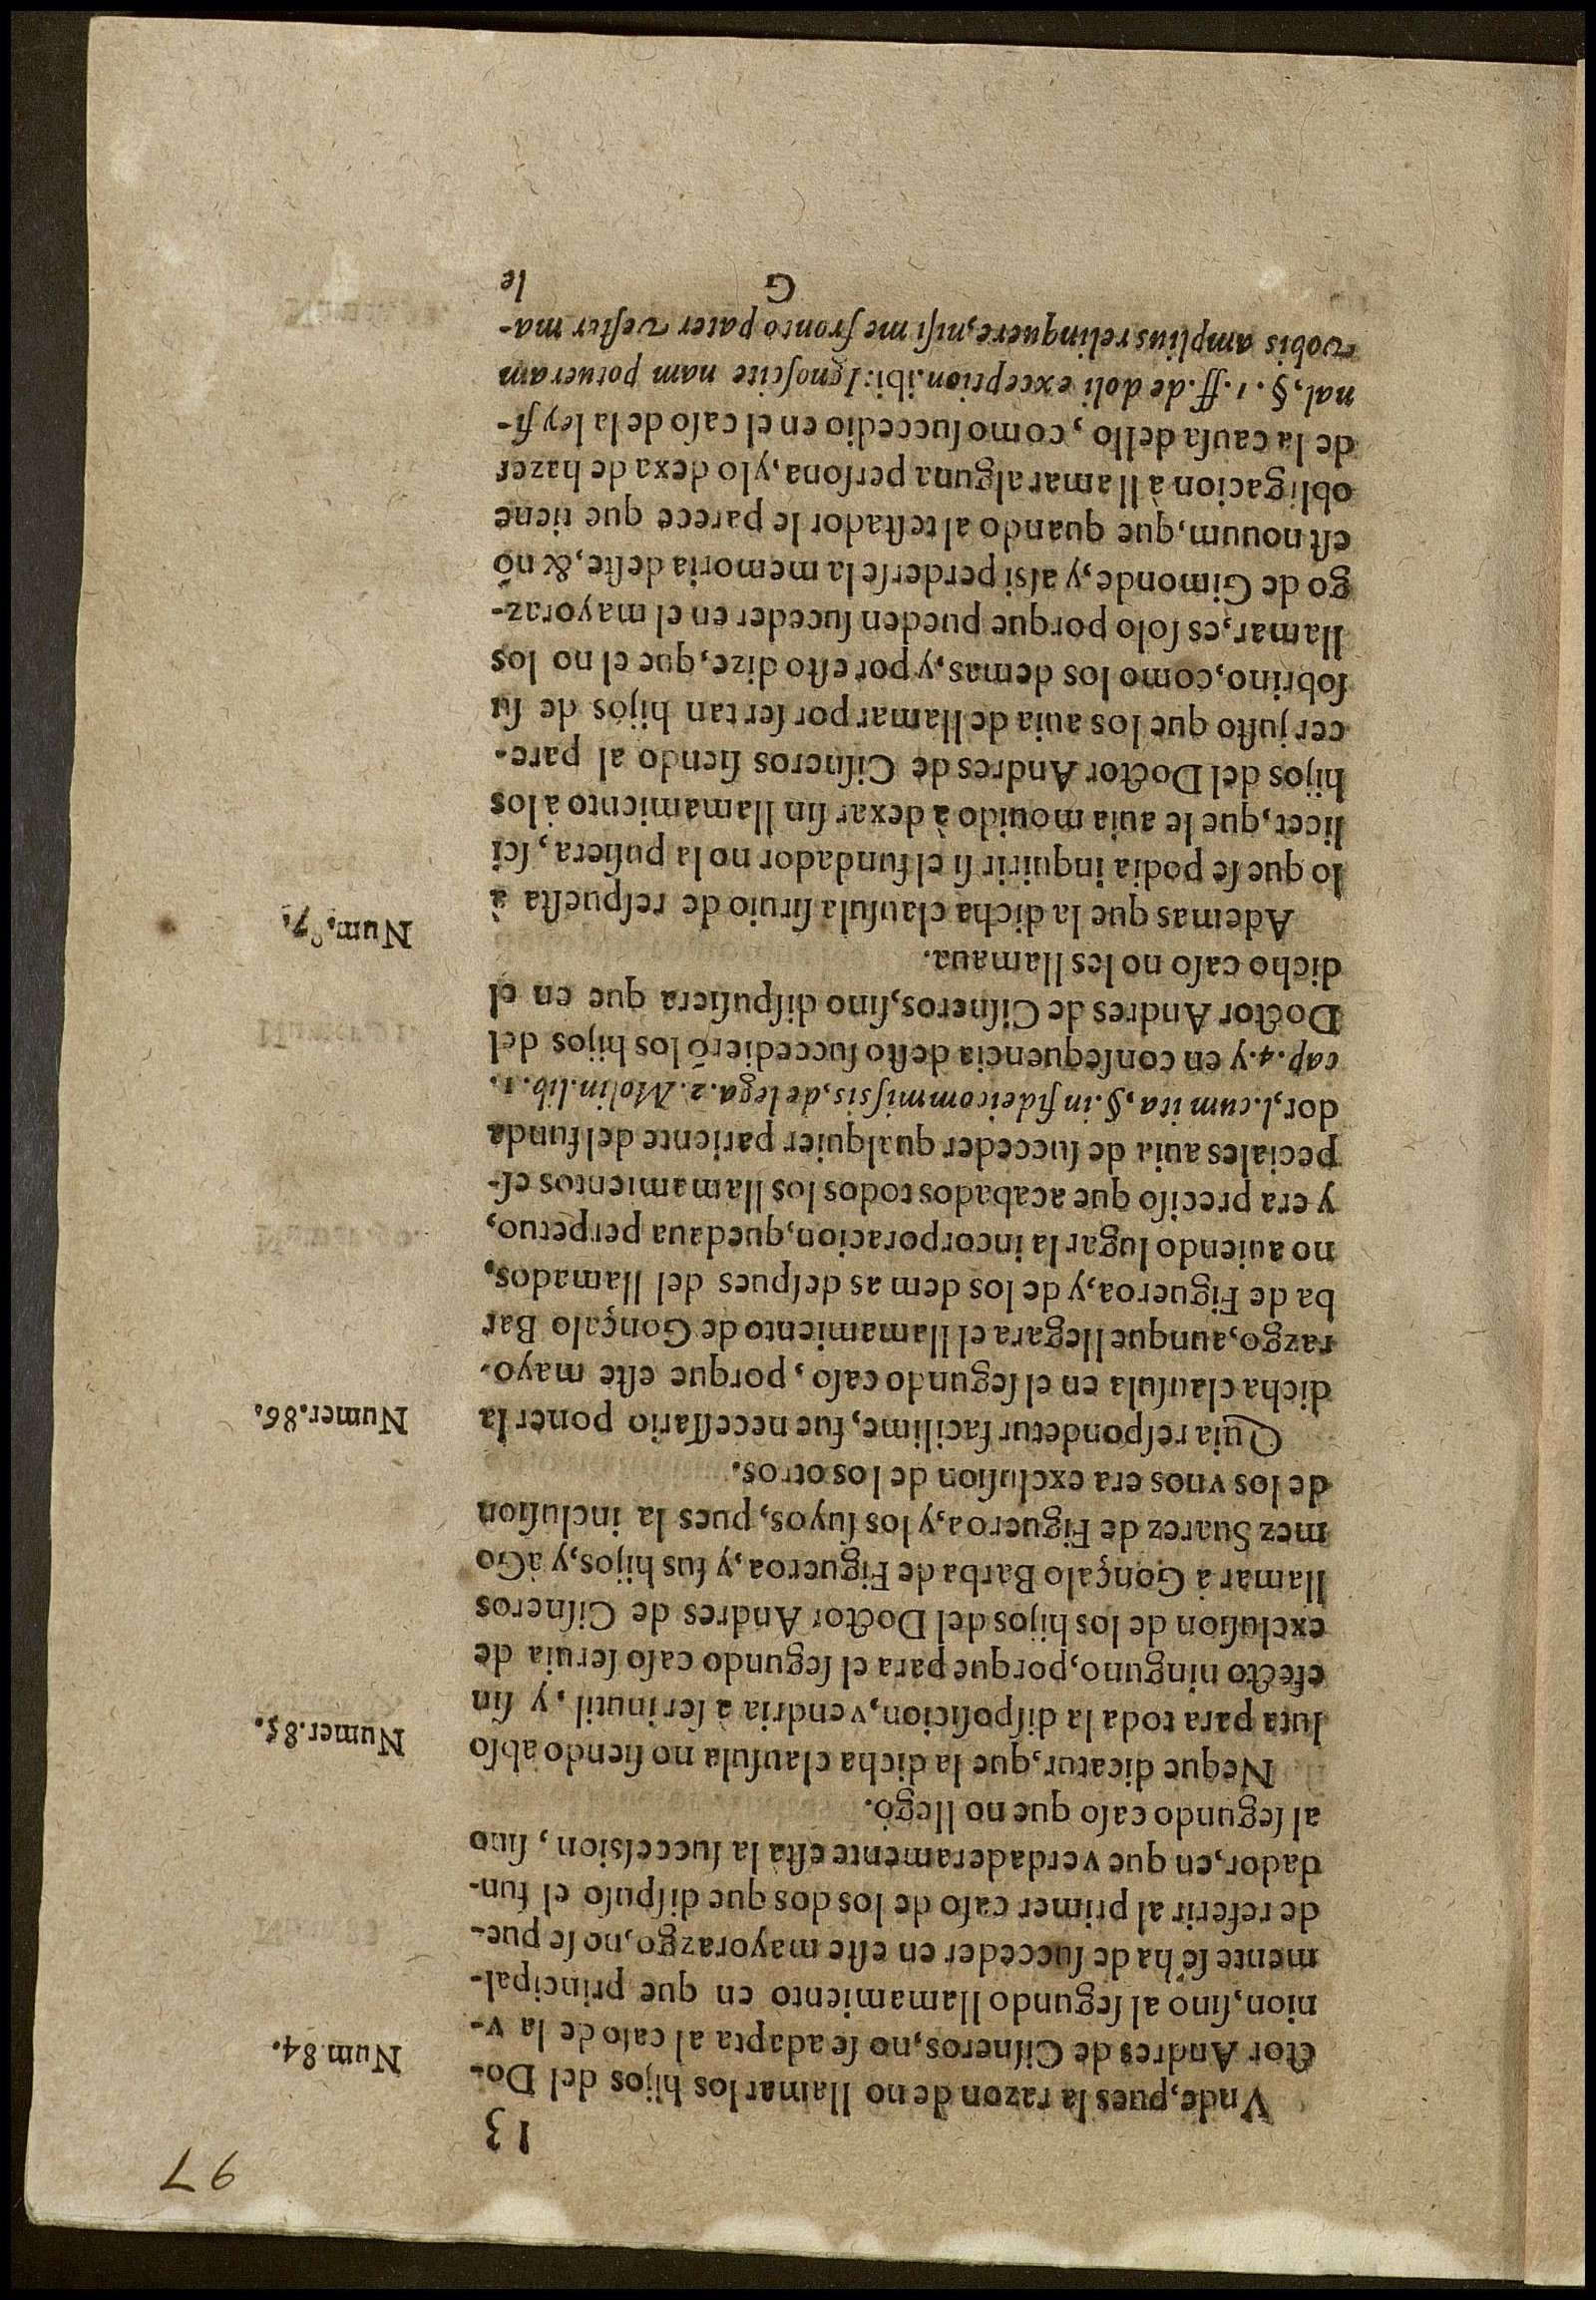 97
13
Vnde, pues la razon de no llamar los hijos del Do-
ctor Andres de Ciſneros, no ſe adapta al caſo de la v-
Num 84.
nion, ſino al ſegundo llamamiento en que principal-
mente ſe ha de ſucceder en eſte mayorazgo, no ſe pue-
de referir al primer caſo de los dos que diſpuſo el fun-
dador, en que verdaderamente eſta la ſucceſsion, ſino
al ſegundo caſo que no llegò.
Neque dicatur, que la dicha clauſula no ſiendo abſo
Numer. 85.
luta para toda la diſpoſicion, vendria à ſer inutil, y ſin
efecto ninguno, porque para el ſegundo caſo ſeruia de
excluſion de los hijos del Doctor Andres de Ciſneros
llamar à Gonçalo Barba de Figueroa, y ſus hijos, y à Go
mez Suarez de Figueroa, y los ſuyos, pues la incluſion
de los vnos era excluſion de los otros.
Quia reſpondetur facilime, fue neceſſario poner la
Numer. 86.
dicha clauſula en el ſegundo caſo, porque eſte mayo-
razgo, aunque llegara el llamamiento de Gonçalo Bar
ba de Figueroa, y de los demas deſpues del llamados,
no auiendo lugar la incorporacion, quedaua perpetuo,
y era preciſo que acabados todos los llamamientos eſ-
peciales auia de ſucceder qualquier pariente del funda
dor, l. cum ita, §. in fideicommiſsis, de lega. 2. Molin. lib. 1.
cap. 4. y en conſequencia deſto ſuccedierõ los hijos del
Doctor Andres de Ciſneros, ſino diſpuſiera que en el
dicho caſo no les llamaua.
Ademas que la dicha clauſula ſiruio de reſpueſta à
Num. 87.
lo que ſe podia inquirir ſi el fundador no la puſiera, ſci
licet, que le auia mouido à dexar ſin llamamiento à los
hijos del Doctor Andres de Ciſneros ſiendo al pare-
cer juſto que los auia de llamar por ſer tan hijos de ſu
ſobrino, como los demas, y por eſto dize, que el no los
llamar, es ſolo porque pueden ſuceder en el mayoraz-
go de Gimonde, y aſsi perderſe la memoria deſte, & nõ
eſt nouum, que quando al teſtador le parece que tiene
obligacion à llamar alguna perſona, y lo dexa de hazer
de la cauſa dello, como ſuccedio en el caſo de la ley fi-
nal, §. 1. ff. de doli exception. ibi: Ignoſcite nam potueram
vobis amplius relinquere, niſi me fronto pater veſter ma-
G
le